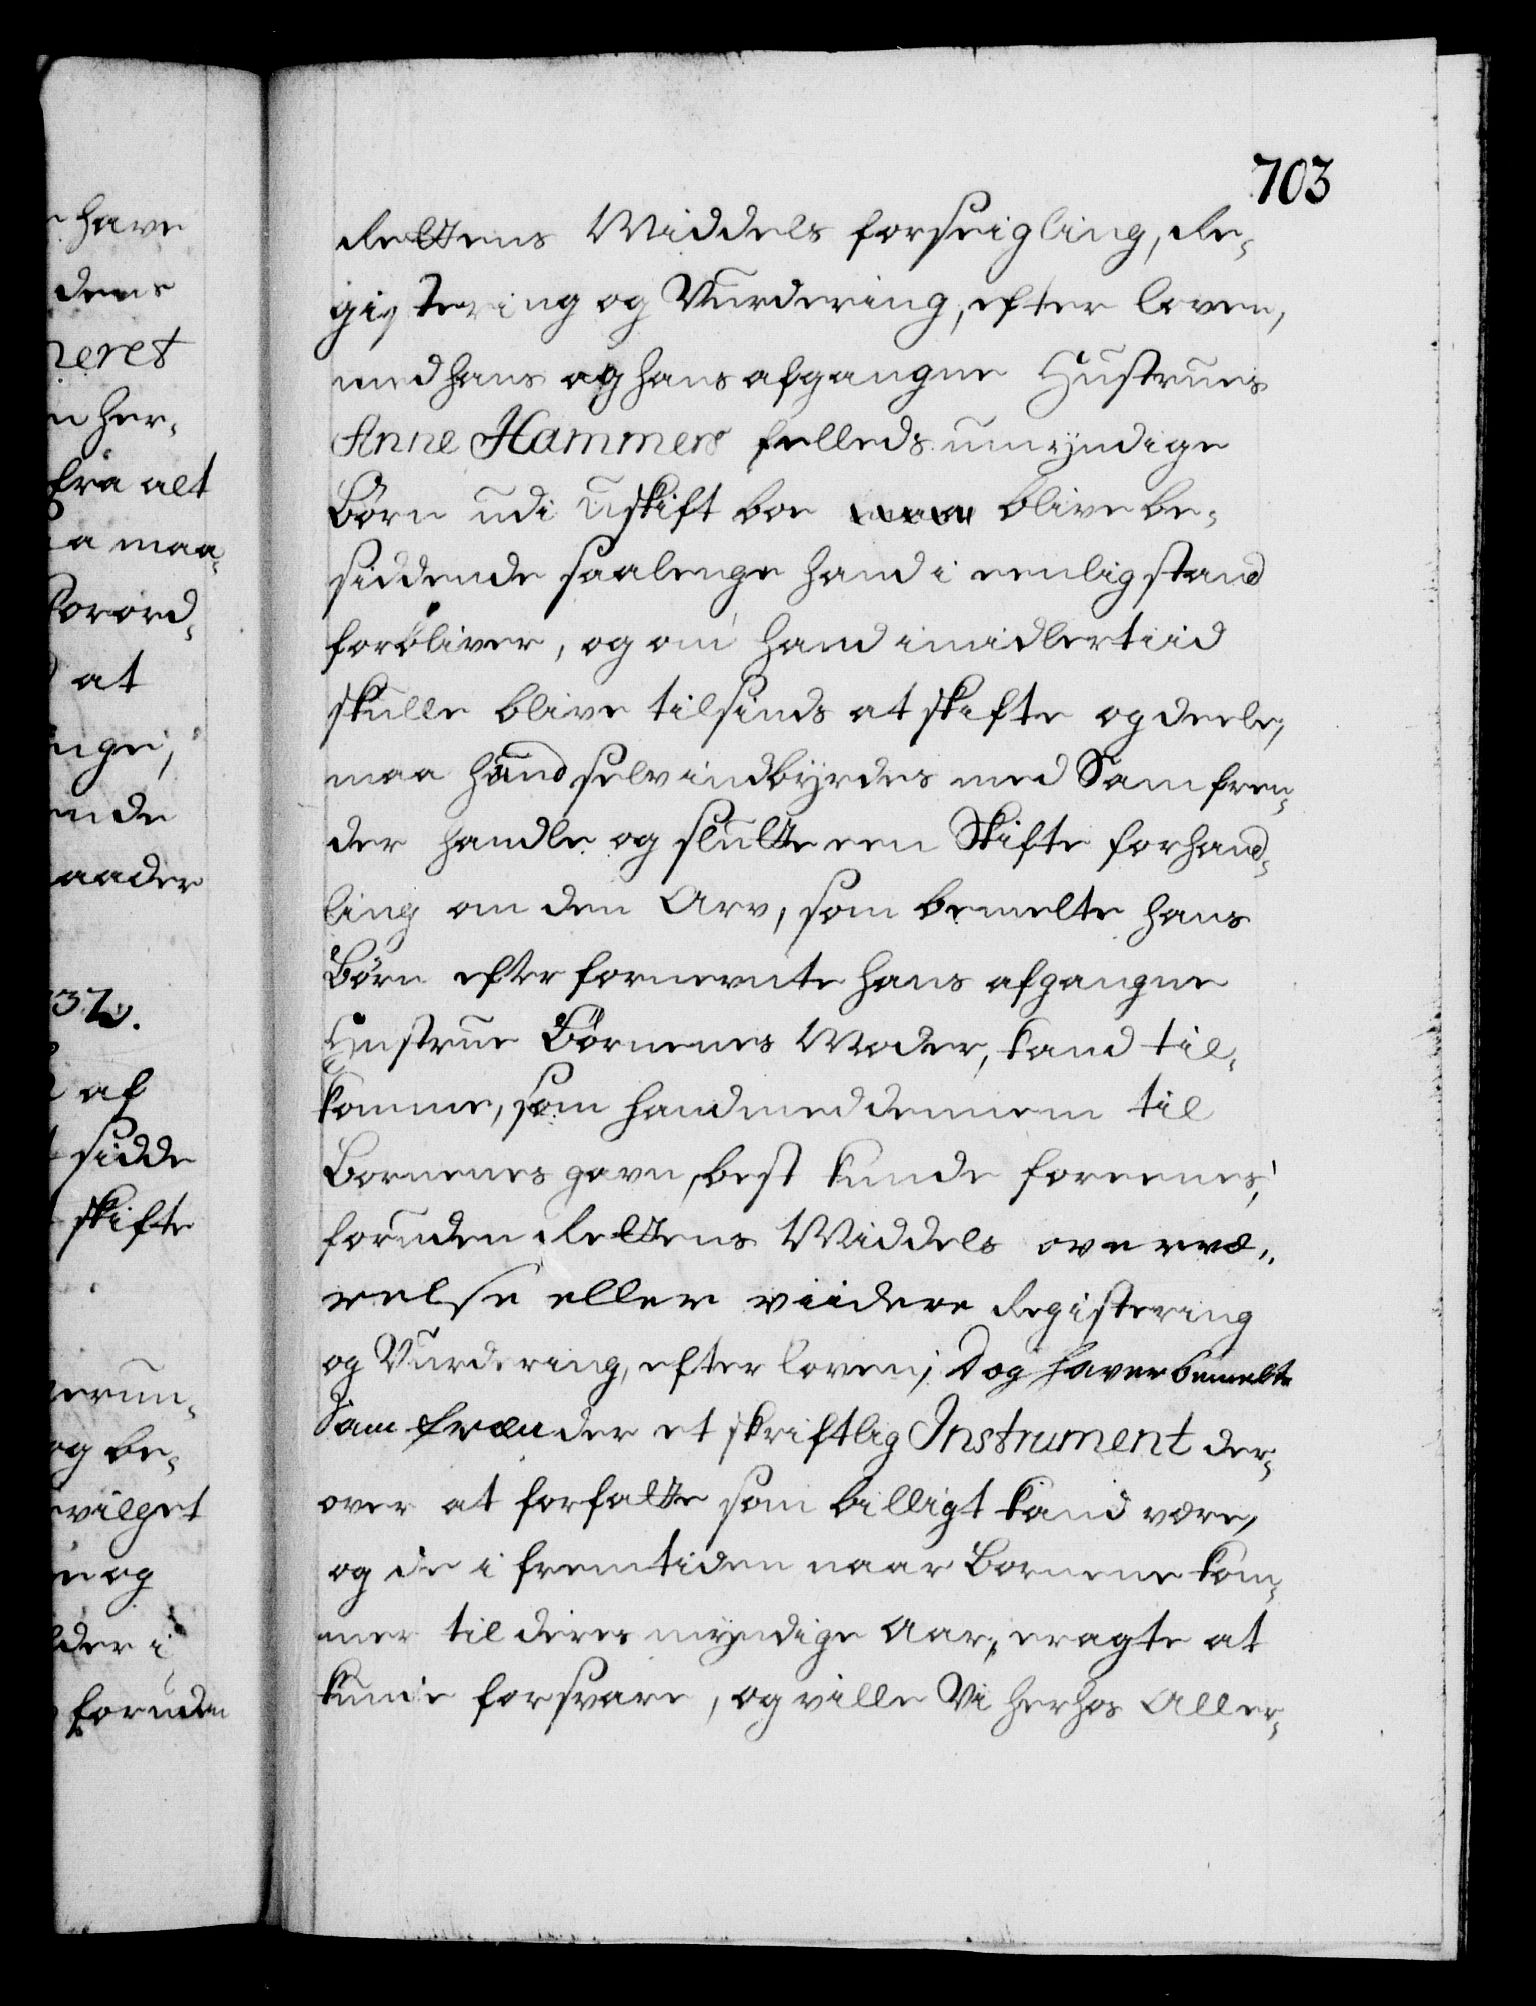 703
Rettens Middels forseigling, Re¬
gistering og Vurdering, efter loven,
med hans og hans afgangne Hustrues
Anne Hammers felleds umyndige
Børn udi uskift boe blive be¬
siddende saalenge hand i eenlig stand
forbliver, og om hand imidlertiid
skulle blive tilsinds at skifte og deele,
maa hand selv indbyrdes med Samfren¬
der handle og slutte een Skifte forhand¬
ling om den Arv, som bemelte hans
Børn efter fornevnte hans afgangne
Hustrue Børnenes Moder, kand til¬
komme, som hand med dennem til
Børnenes gavn, best kunde foreenes,
foruden Rettens Middels overvæ¬
relse eller viidere Registering
og Vurdering, efter loven; Dog haver bemelte
Samfrænder et skriftlig Instrument der¬
over at forfatte som billigt kand være,
og de i fremtiden naar Børnene kom¬
mer til deres myndige Aar, eragte at
kunde forsvare, og ville Vi herhos Aller¬
have
dens
neret
her¬
fra alt
maa¬
Forord¬
at
nde
aader
af
sidde
skifte
og be¬
vilget
og
der i
foruden